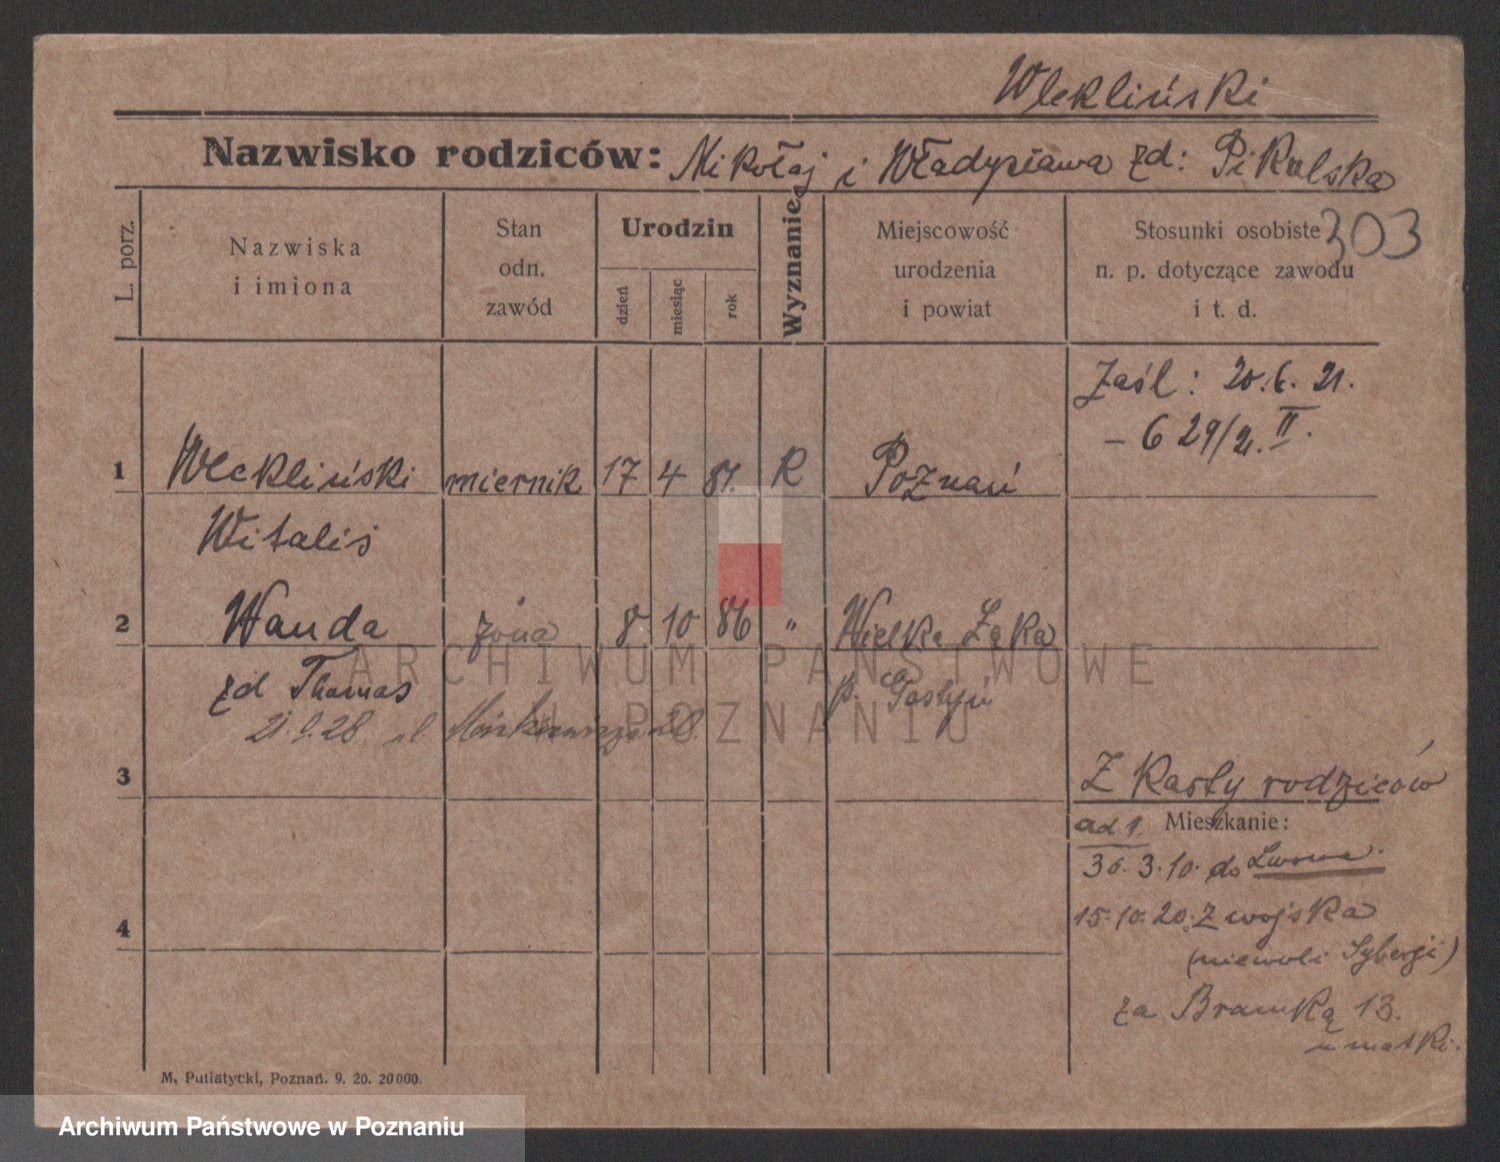 Wlekliński
Nazwisko rodziców: Mikołaj i Władysława zd: Pikulska
303
L. porz.
Nazwiska
i imiona
Stan
odn.
zawód
Urodzin
dzień
miesiąc
rok
Wyznanie
Miejscowość
urodzenia
i powiat
Stosunki osobiste
n. p. dotyczące zawodu
i t. d.
Zaśl: 20.6.21.
- 629/21. II.
1 Wlekliński miernik 17 4 81. R Poznań
Witalis
2 Wanda żona 8 10 86 " Wielka Łąka
zd Thomas p. Gostyń
21.9.28
3
Z Karty rodziców
ad 1. Mieszkanie:
30.3.10. do Lwowa.
15.10.20. Z wojska
(niewoli Syberji)
za Bramką 13.
u matki.
4
M. Putiatycki, Poznań. 9. 20. 20000.
ARCHIWUM PAŃSTWOWE
W POZNANIU
Archiwum Państwowe w Poznaniu